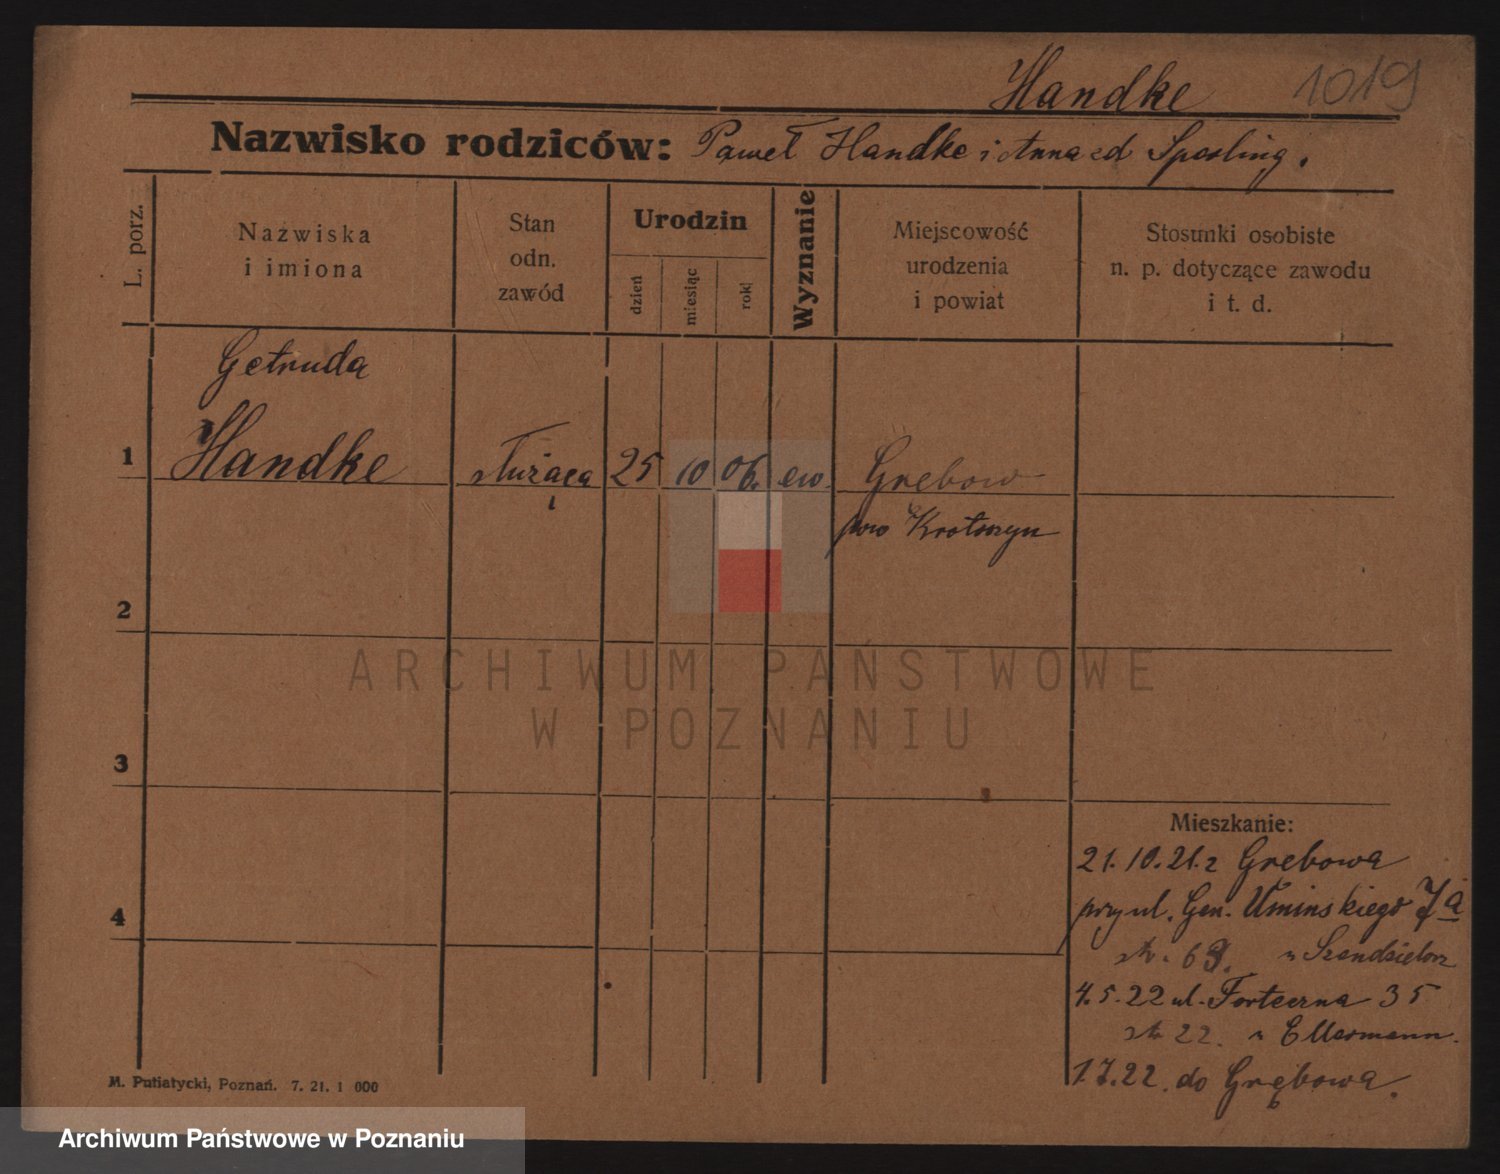 Handke 1019
Nazwisko rodziców: Paweł Handke i Anna zd Sperling.
L. porz.
Nazwiska
i imiona
Stan
odn.
zawód
Urodzin
dzień
miesiąc
rok
Wyznanie
Miejscowość
urodzenia
i powiat
Stosunki osobiste
n. p. dotyczące zawodu
i t. d.
Getruda
1 Handke służąca 25 10 06. ew. Grebow
pow Krotoszyn
2
ARCHIWUM PAŃSTWOWE
W POZNANIU
3
Mieszkanie:
21.10.21. z Grebowa
4 przy ul. Gen. Umińskiego 7a
str. 69. u
4.5.22 ul. Forteczna 35
str 22. u Ellermann.
1.7.22. do Grębowa.
M. Putiatycki, Poznań. 7. 21. 1 000
Archiwum Państwowe w Poznaniu